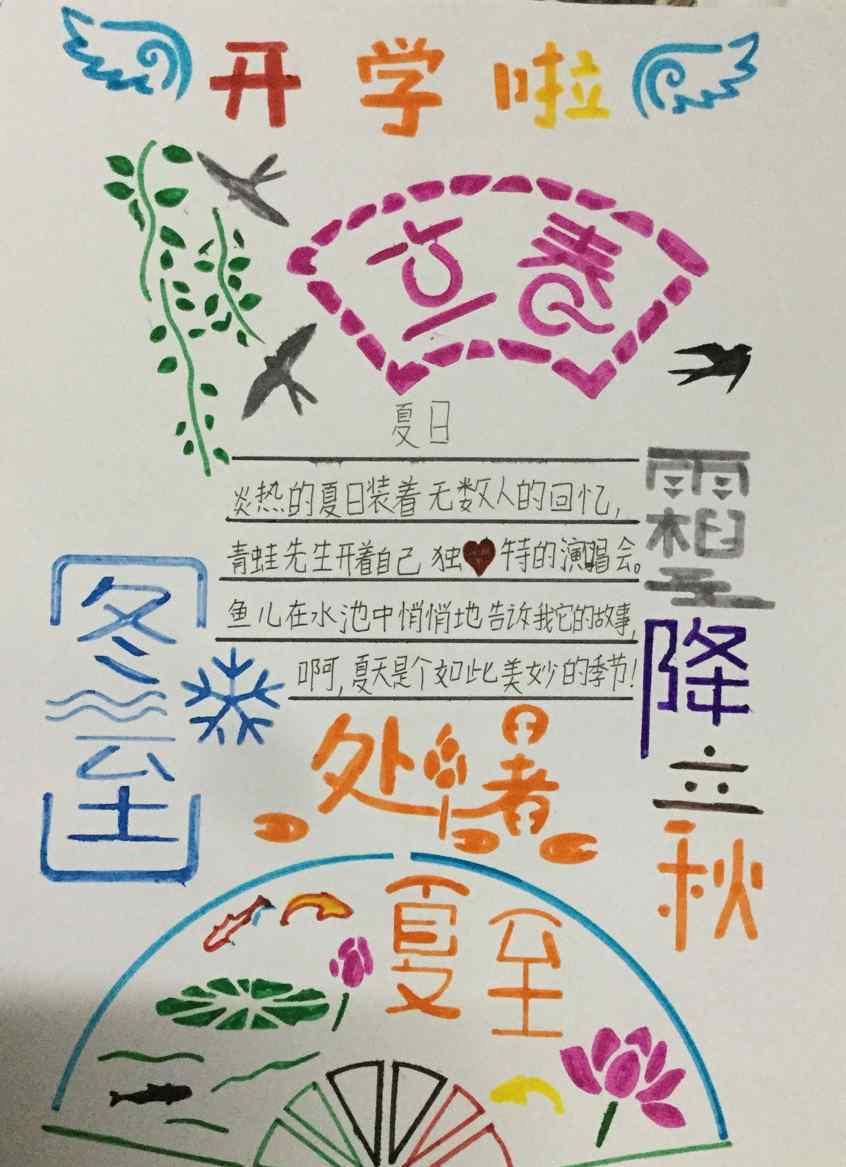 开学啦
立春
夏日
炎热的夏日装着无数人的回忆,
青蛙先生开着自己独特的演唱会。
鱼儿在水池中悄悄地告诉我它的故事,
啊,夏天是个如此美妙的季节!
霜降
立秋
冬至
处暑
夏至